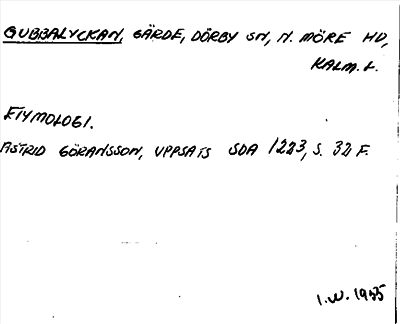 GUBBALYCKAN, GÄRDE, DÖRBY SN, N. MÖRE HD,
KALM. L.
ETYMOLOGI.
ASTRID GÖRANSSON, UPPSATS SDA 1223, S. 32 F.
I.W. 1955